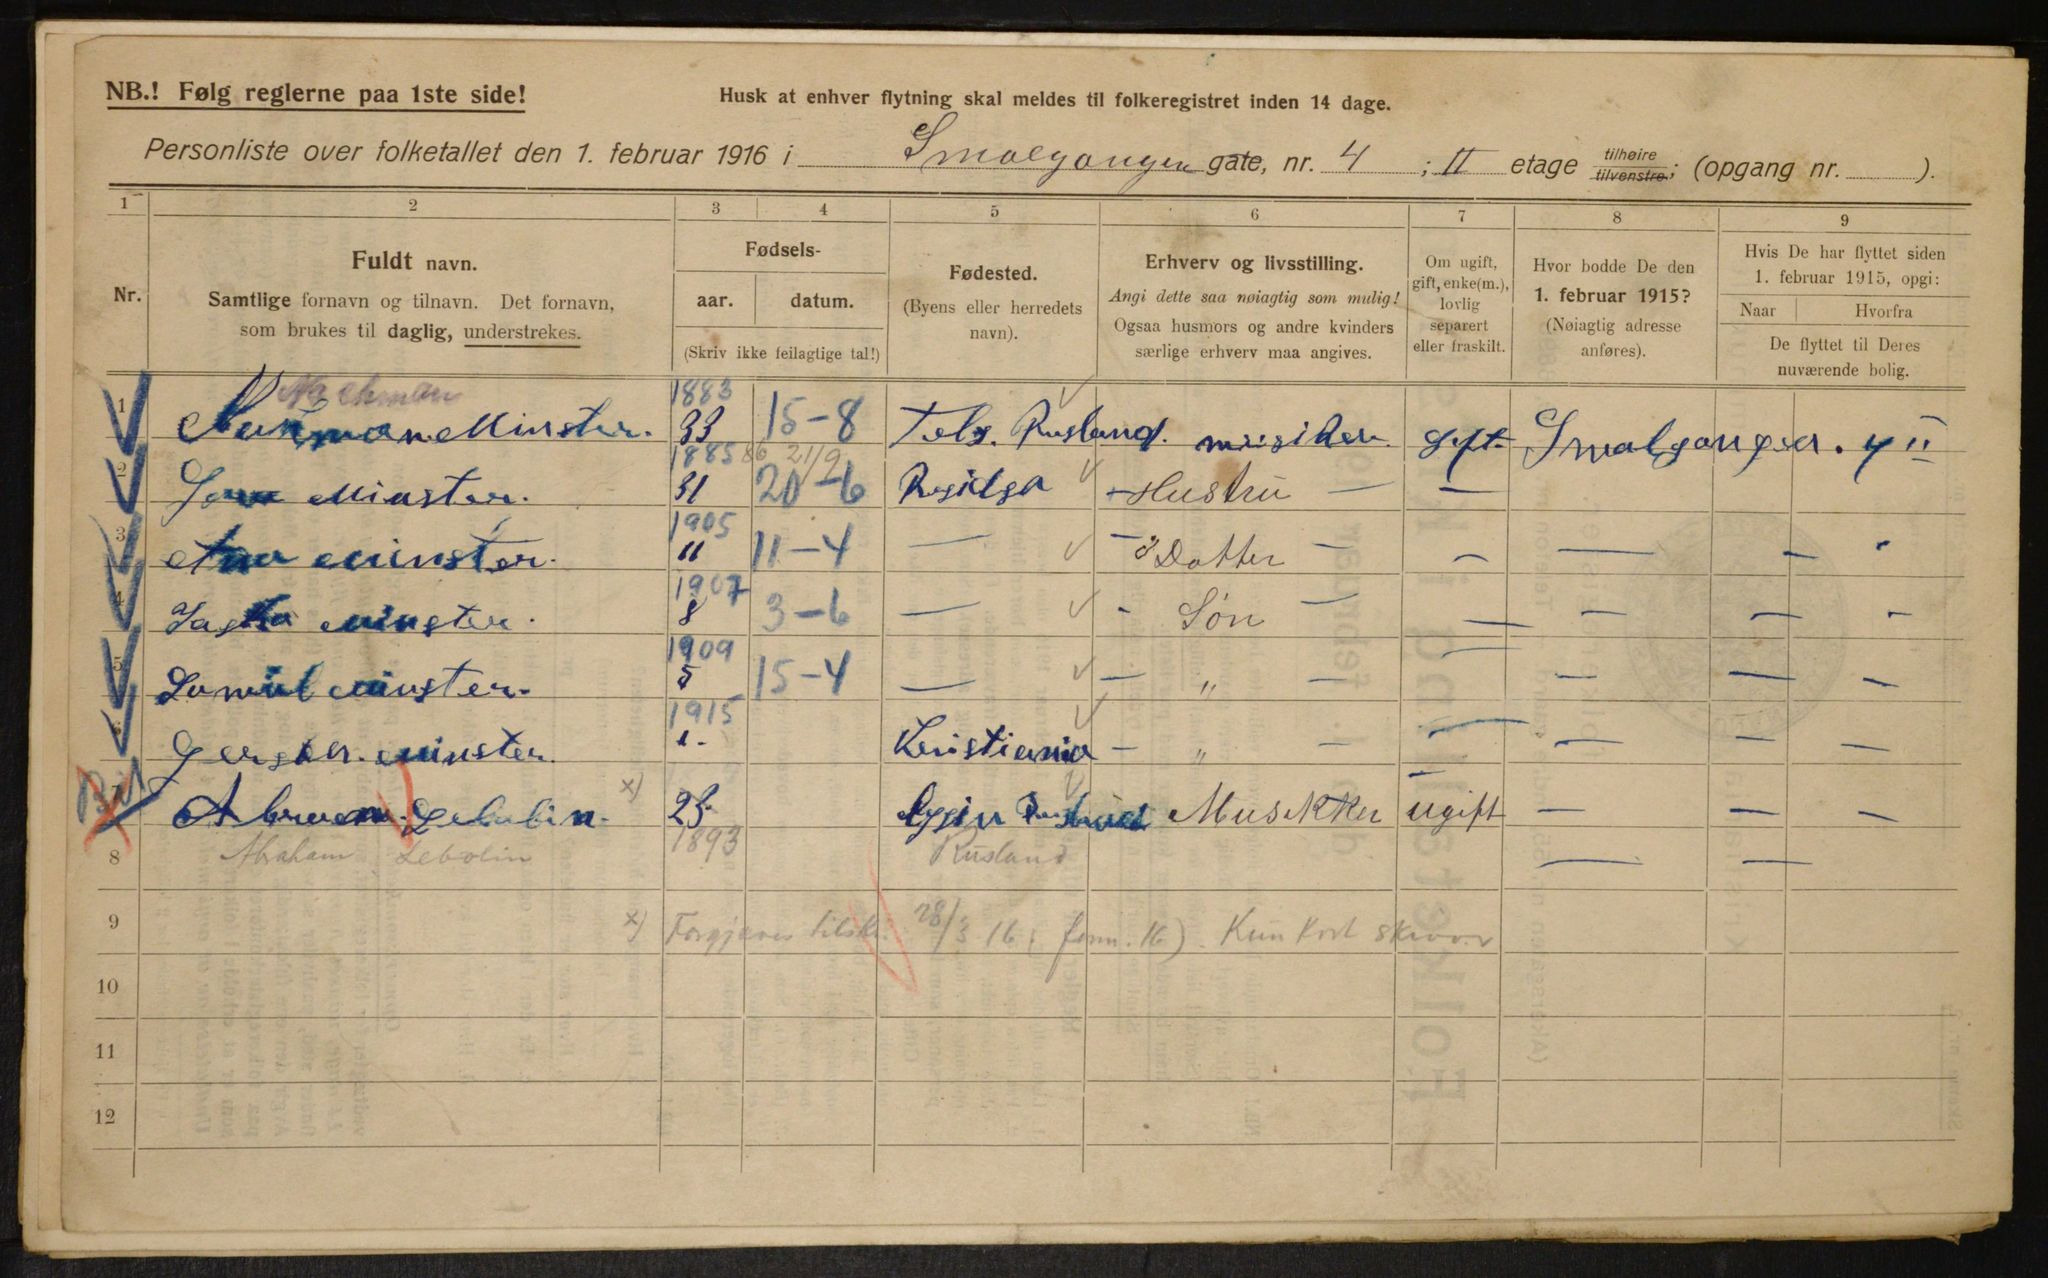 NB.! Følg reglerne paa 1ste side!
Husk at enhver flytning skal meldes til folkeregistret inden 14 dage.
Personliste over folketallet den 1. februar 1916 i Smalgangen gate, nr. 4 ; II etage tilhøire tilvenstre; (opgang nr. ).
1 2 3 4 5 6 7 8 9
Nr.
Fuldt navn.
Samtlige fornavn og tilnavn. Det fornavn,
som brukes til daglig, understrekes.
Fødsels-
aar. datum.
(Skriv ikke feilagtige tal!)
Fødested.
(Byens eller herredets
navn).
Erhverv og livsstilling.
Angi dette saa nøiagtig som mulig!
Ogsaa husmors og andre kvinders
særlige erhverv maa angives.
Om ugift,
gift, enke(m.),
lovlig
separert
eller fraskilt.
Hvor bodde De den
1. februar 1915?
(Nøiagtig adresse
anføres).
Hvis De har flyttet siden
1. februar 1915, opgi:
Naar Hvorfra
De flyttet til Deres
nuværende bolig.
Nachman 1883
1 Minster. 33 15-8 Rusland. musiker gift Smalgangen. 4 II
1885 86 21/9
2 Minster. 31 20-6 — Hustru — —
1905
3 Minster. 11 11-4 — — Datter — — — — "
1907
4 Minster. 8 3-6 — - Søn — — — — -
1909
5 Minster. 5 15-4 — — " — — — — —
1915
6 Minster. 1. Kristiania — " — — — — —
7 x) 23 Rusland Musikker ugift — — —
8 Abraham Lebolin 1893 Rusland — —
9 x) Forgjæves tilskr. 28/3 16 (fom. 16). Kun kort
10
11
12